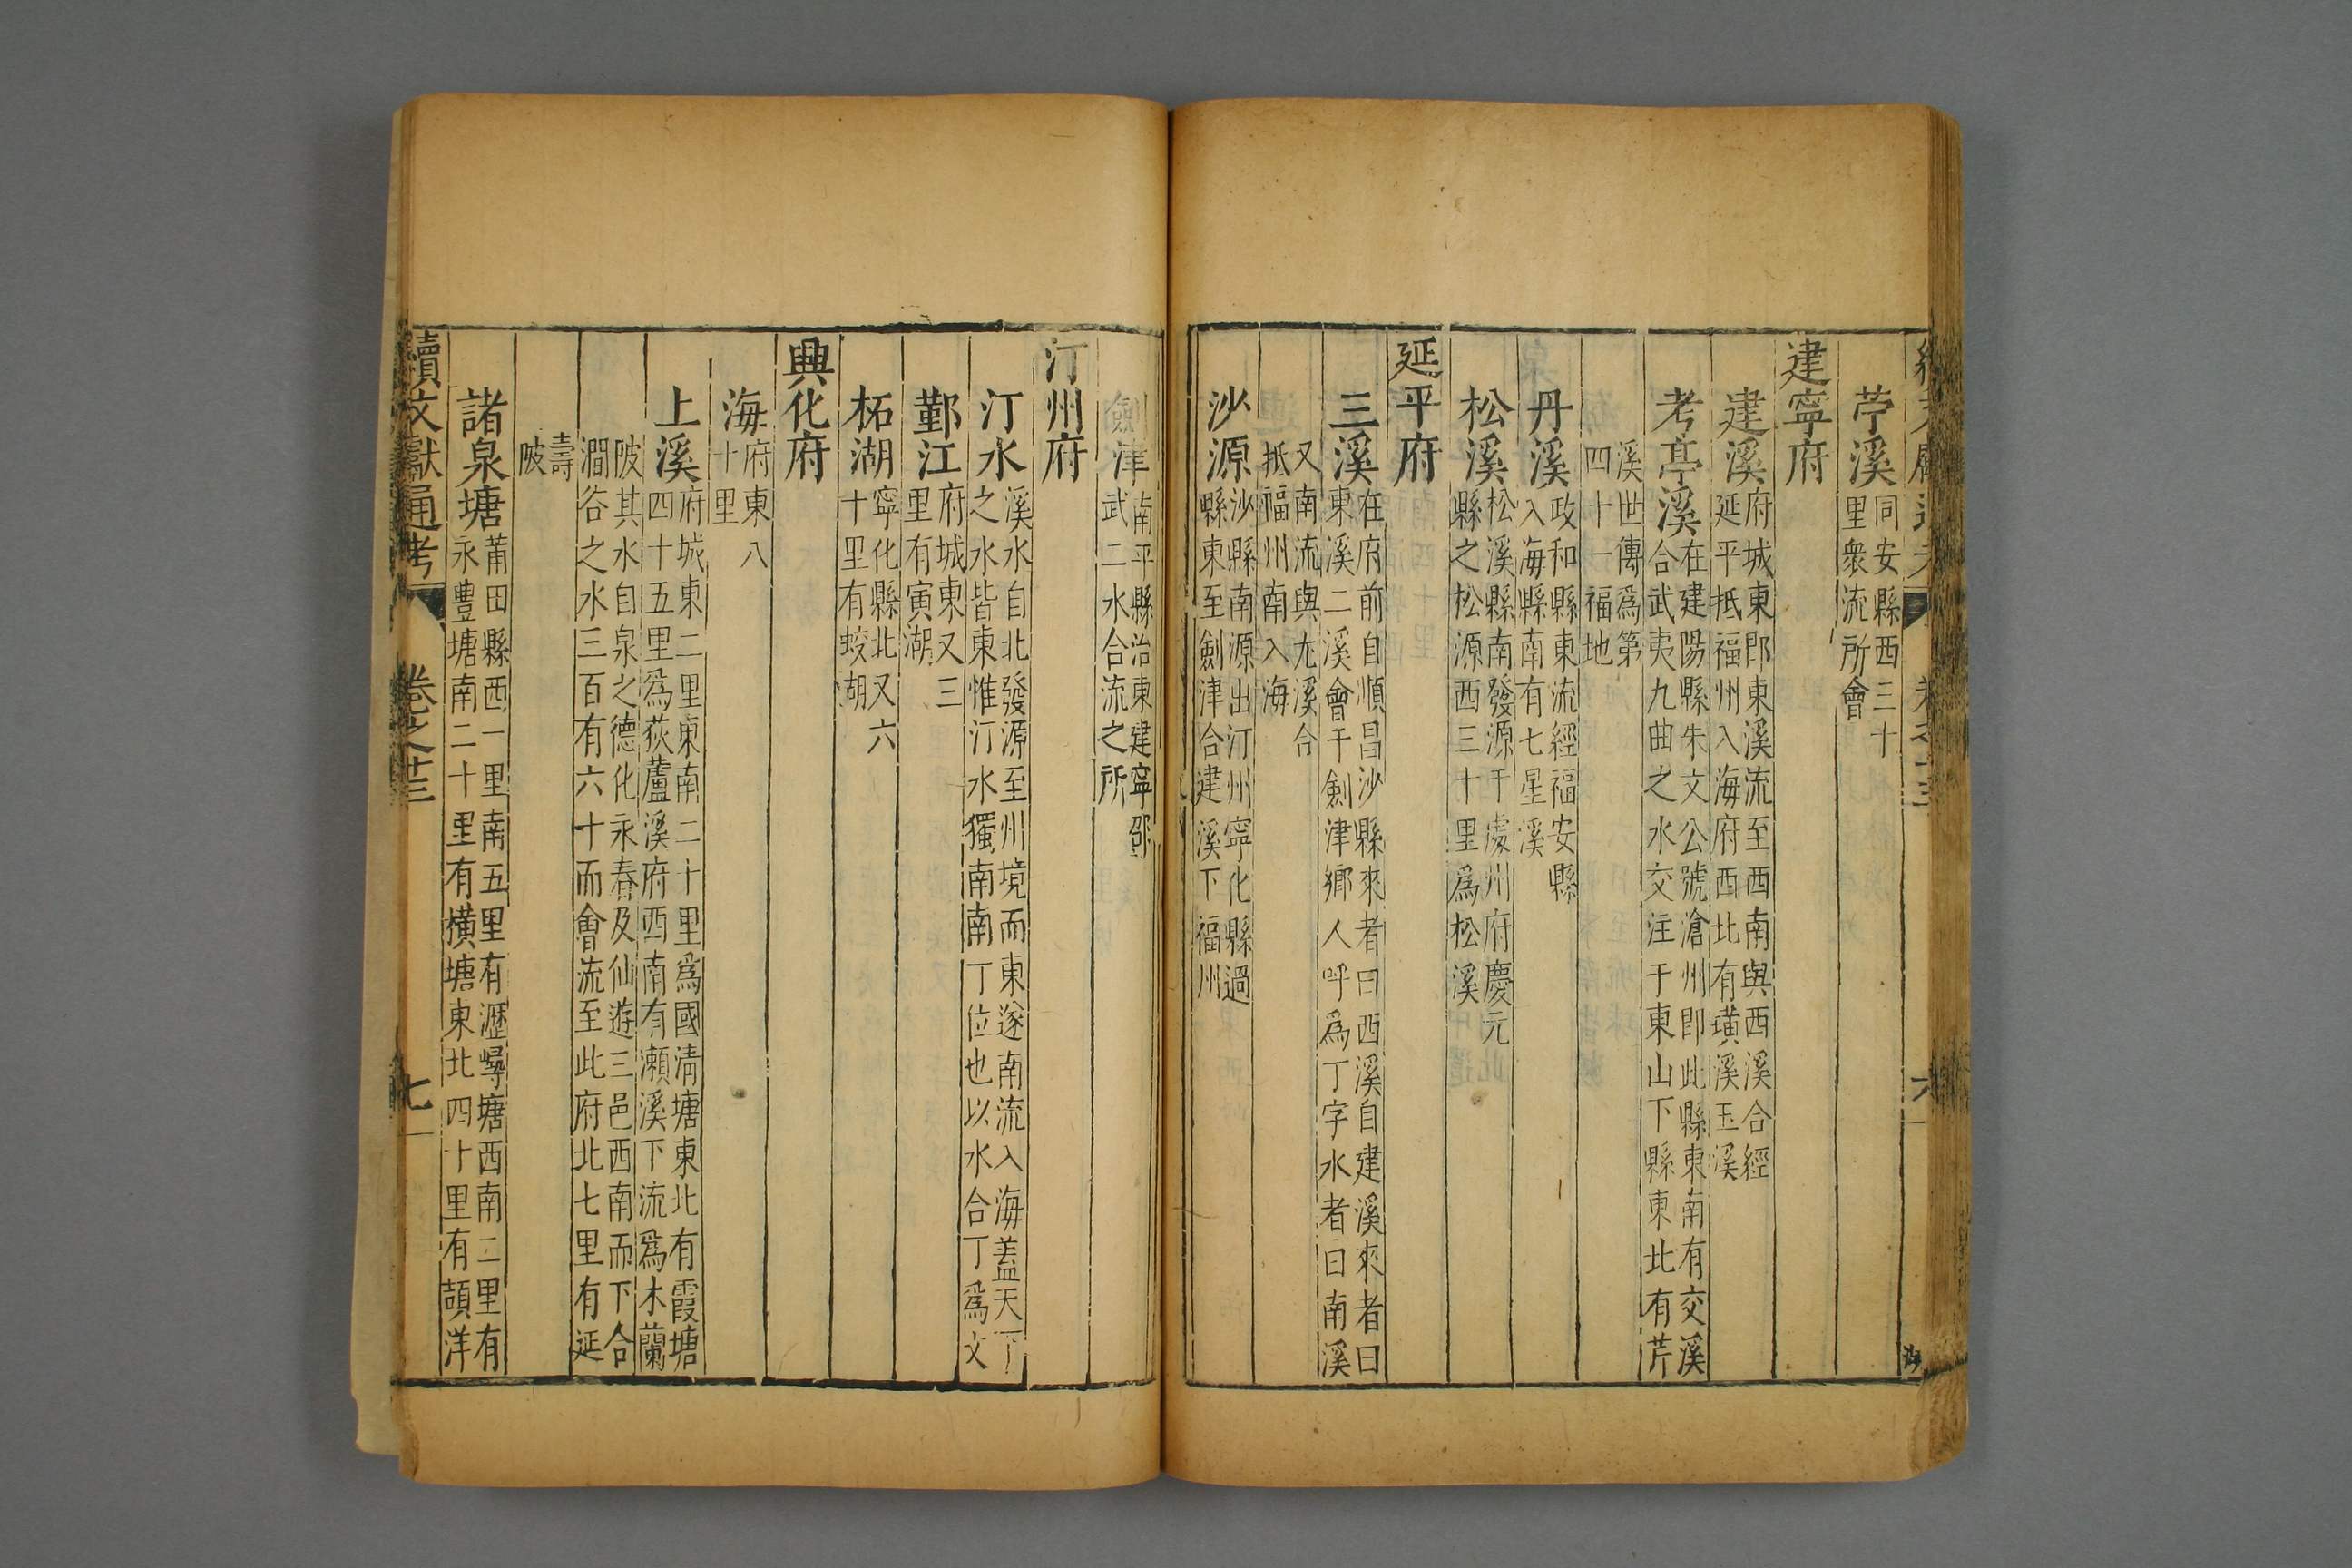 苧溪同安縣西三十里衆流所會
建寧府
建溪府城東即東溪流至西南與西溪合經延平抵福州入海府西北有璜溪玉溪
考亭溪在建陽縣朱文公號滄州即此縣東南有交溪合武夷九曲之水交注于東山下縣東北有芹
溪世傳爲第四十一福地
丹溪政和縣東流經福安縣入海縣南有七星溪
松溪松溪縣南發源于處州府慶元縣之松源西三十里爲松溪
延平府
三溪在府前自順昌沙縣來者曰西溪自建溪來者曰東溪二溪會于劍津鄉人呼爲丁字水者曰南溪
又南流與尤溪合抵福州南入海
沙源沙縣南源出汀州寧化縣過縣東至劍津合建溪下福州
劍津南平縣治東建寧邵武二水合流之所
汀州府
汀水溪水自北發源至州境而東遂南流入海蓋天下之水皆東惟汀水獨南南丁位也以水合丁爲文
鄞江府城東又三里有寅湖
柘湖寧化縣北又六十里有蛟湖
興化府
海府東八十里
上溪府城東二里東南二十里爲國清塘東北有霞塘四十五里爲荻蘆溪府西南有瀬溪下流爲木蘭
陂其水自泉之德化永春及仙遊三邑西南而下合澗谷之水三百有六十而會流至此府北七里有延
壽陂
諸泉塘莆田縣西一里南五里有瀝嶹塘西南二里有永豐塘南二十里有橫塘東北四十里有頡洋
續文獻通考 卷之十三 七